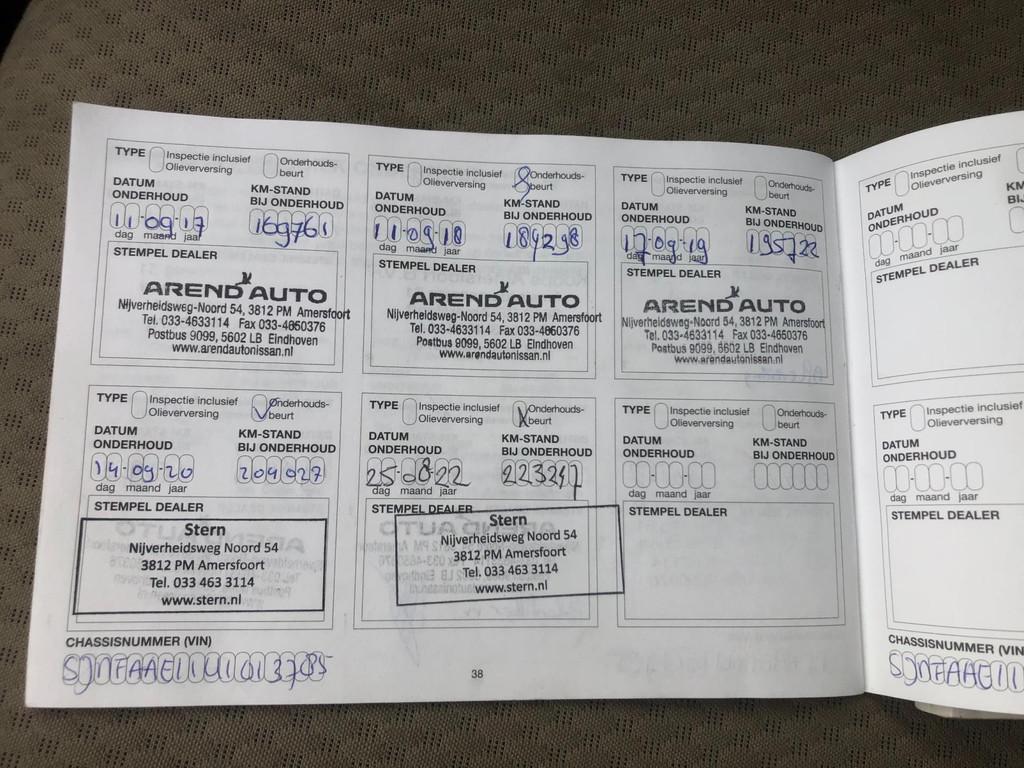 TYPE Inspectie inclusief Olieverversing Onderhouds-beurt
DATUM ONDERHOUD KM-STAND BIJ ONDERHOUD
11-09-17 169761
dag maand jaar
STEMPEL DEALER
AREND AUTO
Nijverheidsweg-Noord 54, 3812 PM Amersfoort
Tel. 033-4633114 Fax 033-4650376
Postbus 9099, 5602 LB Eindhoven
www.arendautonissan.nl
TYPE Inspectie inclusief Olieverversing Onderhouds-beurt
DATUM ONDERHOUD KM-STAND BIJ ONDERHOUD
11-09-18 184298
dag maand jaar
STEMPEL DEALER
AREND AUTO
Nijverheidsweg-Noord 54, 3812 PM Amersfoort
Tel. 033-4633114 Fax 033-4650376
Postbus 9099, 5602 LB Eindhoven
www.arendautonissan.nl
TYPE Inspectie inclusief Olieverversing Onderhouds-beurt
DATUM ONDERHOUD KM-STAND BIJ ONDERHOUD
17-09-19 195722
dag maand jaar
STEMPEL DEALER
AREND AUTO
Nijverheidsweg-Noord 54, 3812 PM Amersfoort
Tel. 033-4633114 Fax 033-4650376
Postbus 9099, 5602 LB Eindhoven
www.arendautonissan.nl
TYPE Inspectie inclusief Olieverversing Onderhouds-beurt
DATUM ONDERHOUD KM-STAND BIJ ONDERHOUD
14-09-20 204027
dag maand jaar
STEMPEL DEALER
Stern
Nijverheidsweg Noord 54
3812 PM Amersfoort
Tel. 033 463 3114
www.stern.nl
TYPE Inspectie inclusief Olieverversing Onderhouds-beurt
DATUM ONDERHOUD KM-STAND BIJ ONDERHOUD
25-08-22 223247
dag maand jaar
STEMPEL DEALER
Stern
Nijverheidsweg Noord 54
3812 PM Amersfoort
Tel. 033 463 3114
www.stern.nl
TYPE Inspectie inclusief Olieverversing Onderhouds-beurt
DATUM ONDERHOUD KM-STAND BIJ ONDERHOUD
dag maand jaar
STEMPEL DEALER
CHASSISNUMMER (VIN)
SJNFAAE11U1013785
38
TYPE Inspectie inclusief Olieverversing
DATUM ONDERHOUD
dag maand jaar
STEMPEL DEALER
TYPE Inspectie inclusief Olieverversing
DATUM ONDERHOUD
dag maand jaar
STEMPEL DEALER
CHASSISNUMMER (VIN
SJNFAAE11